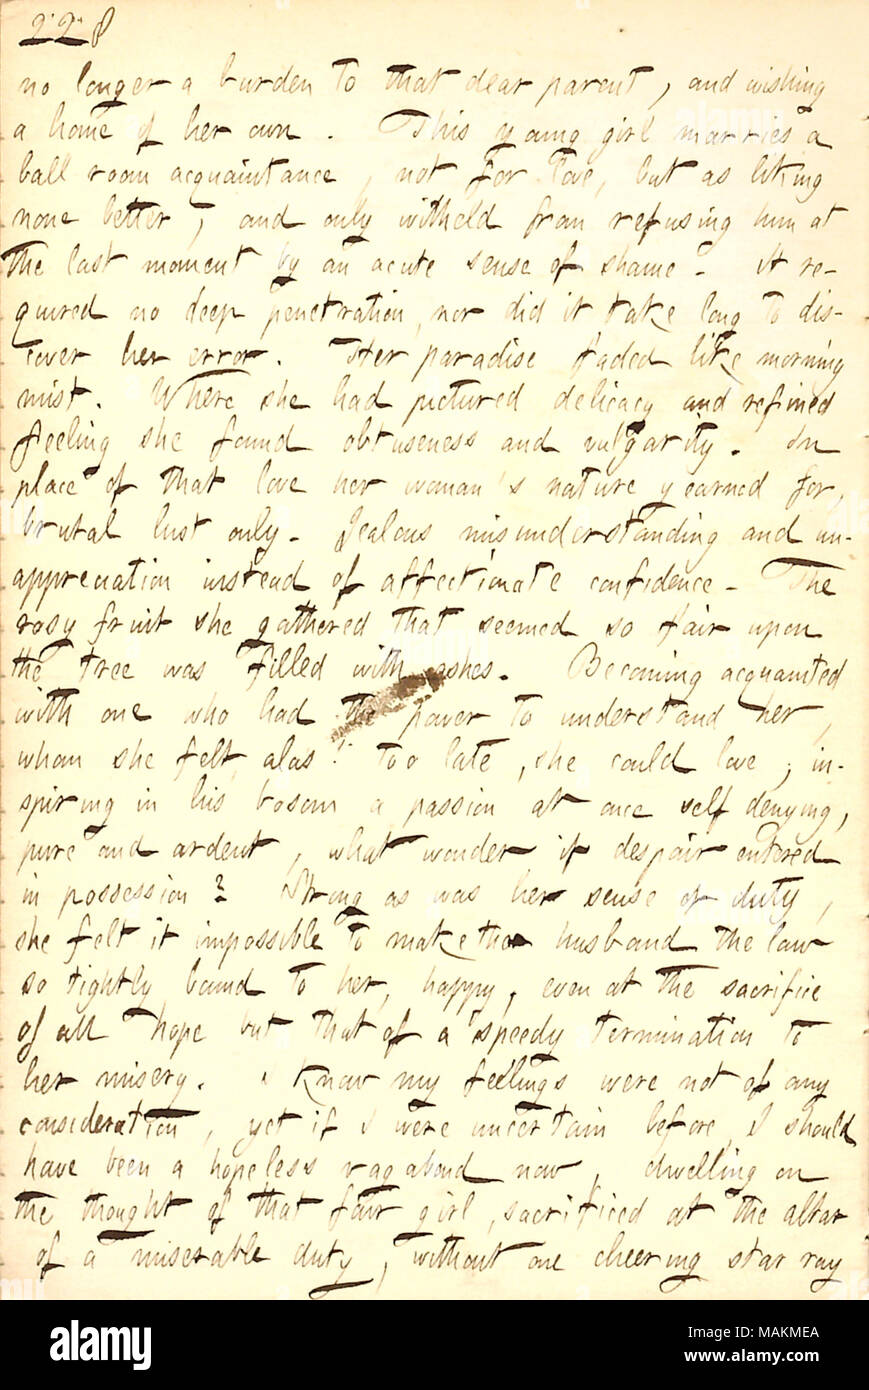 228
no longer a burden to that dear parent, and wishing
a home of her own. This young girl marries a
ball room acquaintance, not for love, but as liking
none better, and only witheld from refusing him at
the last moment by an acute sense of shame. It re-
quired no deep penetration, nor did it take long to dis-
cover her error. Her paradise faded like morning
mist. Where she had pictured delicacy and refined
feeling she found obtuseness and vulgarity. In
place of that love her woman's nature yearned for,
brutal lust only. Jealous misunderstanding and un-
appreciation instead of affectionate confidence. The
rosy fruit she gathered that seemed so fair upon
the tree was filled with ashes. Becoming acquainted
with one who had the power to understand her,
whom she felt, alas! too late, she could love; in-
spiring in his bosom a passion at once self denying,
pure and ardent, what wonder if despair entered
in possession? Strong as was her sense of duty,
she felt it impossible to make the husband the law
so tightly bound to her, happy, even at the sacrifice
of all hope but that of a speedy termination to
her misery. I know my feelings were not of any
consideration, yet if I were uncertain before, I should
have been a hopeless vagabond now, dwelling on
the thought of that fair girl, sacrificed at the altar
of a miserable duty, without one cheering star ray
alamy
Image ID: MAKMEA
www.alamy.com